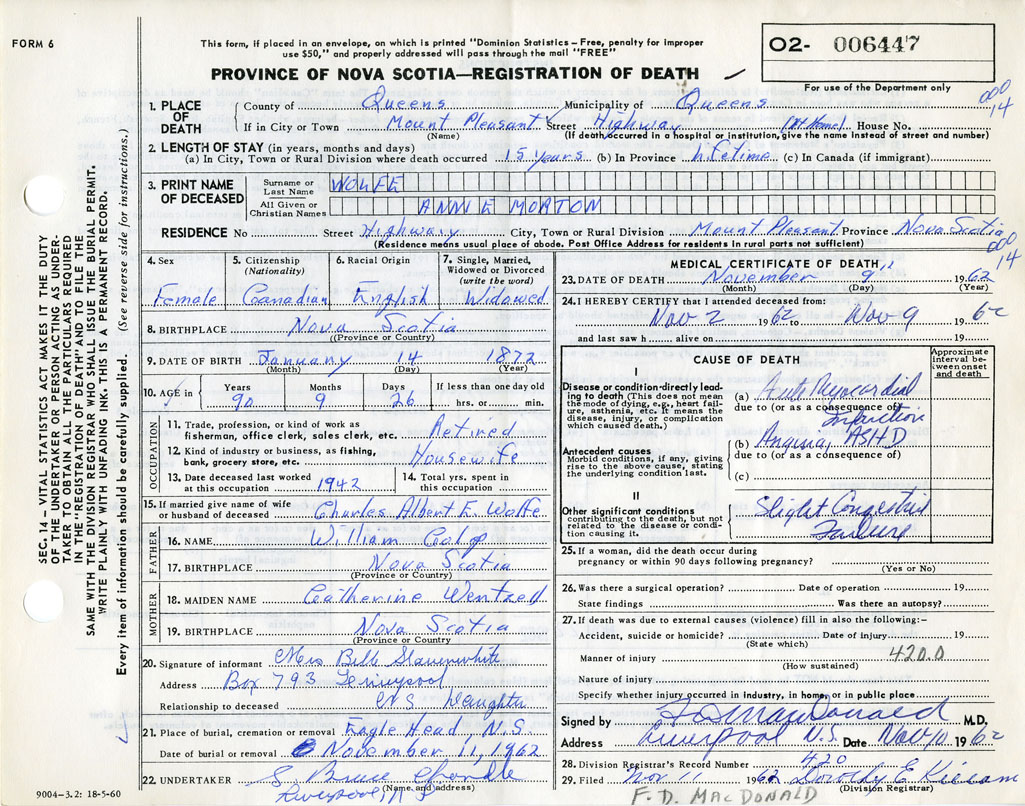 FORM 6
This form, if placed in an envelope, on which is printed "Dominion Statistics – Free, penalty for improper
use $50," and properly addressed will pass through the mail "FREE"
O2- 006447
PROVINCE OF NOVA SCOTIA—REGISTRATION OF DEATH
For use of the Department only
000
14
1. PLACE OF DEATH
County of Queens Municipality of Queens
If in City or Town Mount Pleasant Street Highway (At Home) House No.
(Name) (If death occurred in a hospital or institution, give name instead of street and number)
2. LENGTH OF STAY (in years, months and days)
(a) In City, Town or Rural Division where death occurred 15 years (b) In Province lifetime (c) In Canada (if immigrant)
3. PRINT NAME OF DECEASED
Surname or Last Name WOLFE
All Given or Christian Names ANNIE MORTON
RESIDENCE No Street Highway City, Town or Rural Division Mount Pleasant Province Nova Scotia
(Residence means usual place of abode. Post Office Address for residents in rural parts not sufficient)
000
14
4. Sex Female
5. Citizenship (Nationality) Canadian
6. Racial Origin English
7. Single, Married, Widowed or Divorced (write the word) Widowed
8. BIRTHPLACE Nova Scotia
(Province or Country)
9. DATE OF BIRTH January 14 1872
(Month) (Day) (Year)
10. AGE in Years 90 Months 9 Days 26 If less than one day old hrs. or min.
OCCUPATION
11. Trade, profession, or kind of work as fisherman, office clerk, sales clerk, etc. Retired
12. Kind of industry or business, as fishing, bank, grocery store, etc. Housewife
13. Date deceased last worked at this occupation 1942
14. Total yrs. spent in this occupation
15. If married give name of wife or husband of deceased Charles Albert E. Wolfe
FATHER
16. NAME William
17. BIRTHPLACE Nova Scotia
(Province or Country)
MOTHER
18. MAIDEN NAME Catherine Wentzell
19. BIRTHPLACE Nova Scotia
(Province or Country)
20. Signature of informant Mrs Slauenwhite
Address Box 793 Liverpool
Relationship to deceased N S Daughter
21. Place of burial, cremation or removal Eagle Head, N.S.
Date of burial or removal November 11, 1962
22. UNDERTAKER S. Bruce
(Name and address)
Liverpool N S
9004-3.2: 18-5-60
MEDICAL CERTIFICATE OF DEATH
23. DATE OF DEATH November 9" 1962
(Month) (Day) (Year)
24. I HEREBY CERTIFY that I attended deceased from:
Nov 2 1962 to Nov 9 1962
and last saw h alive on 19
CAUSE OF DEATH
Approximate interval between onset and death
I
Disease or condition directly leading to death (This does not mean the mode of dying, e.g., heart failure, asthenia, etc. It means the disease, injury, or complication which caused death.)
(a) Acute Myocardial
due to (or as a consequence of) Infarction
(b) Angina, ASHD
due to (or as a consequence of)
Antecedent causes
Morbid conditions, if any, giving rise to the above cause, stating the underlying condition last.
(c)
II
Other significant conditions
contributing to the death, but not related to the disease or condition causing it.
Slight Congestive
Failure
25. If a woman, did the death occur during
pregnancy or within 90 days following pregnancy?
(Yes or No)
26. Was there a surgical operation? Date of operation 19
State findings Was there an autopsy?
27. If death was due to external causes (violence) fill in also the following:–
Accident, suicide or homicide? Date of injury 19
(State which)
Manner of injury 420.0
(How sustained)
Nature of injury
Specify whether injury occurred in industry, in home, or in public place
Signed by F D MacDonald M.D.
Address Liverpool N.S. Date Nov 10 1962
28. Division Registrar's Record Number 420
29. Filed Nov 11 1962 Dorothy E Killam
(Division Registrar)
F. D. MACDONALD
SEC. 14 – VITAL STATISTICS ACT MAKES IT THE DUTY
OF THE UNDERTAKER OR PERSON ACTING AS UNDER-
TAKER TO OBTAIN ALL THE PARTICULARS REQUIRED
IN THE "REGISTRATION OF DEATH" AND TO FILE THE
SAME WITH THE DIVISION REGISTRAR WHO SHALL ISSUE THE BURIAL PERMIT.
WRITE PLAINLY WITH UNFADING INK. THIS IS A PERMANENT RECORD.
Every item of information should be carefully supplied. (See reverse side for instructions.)